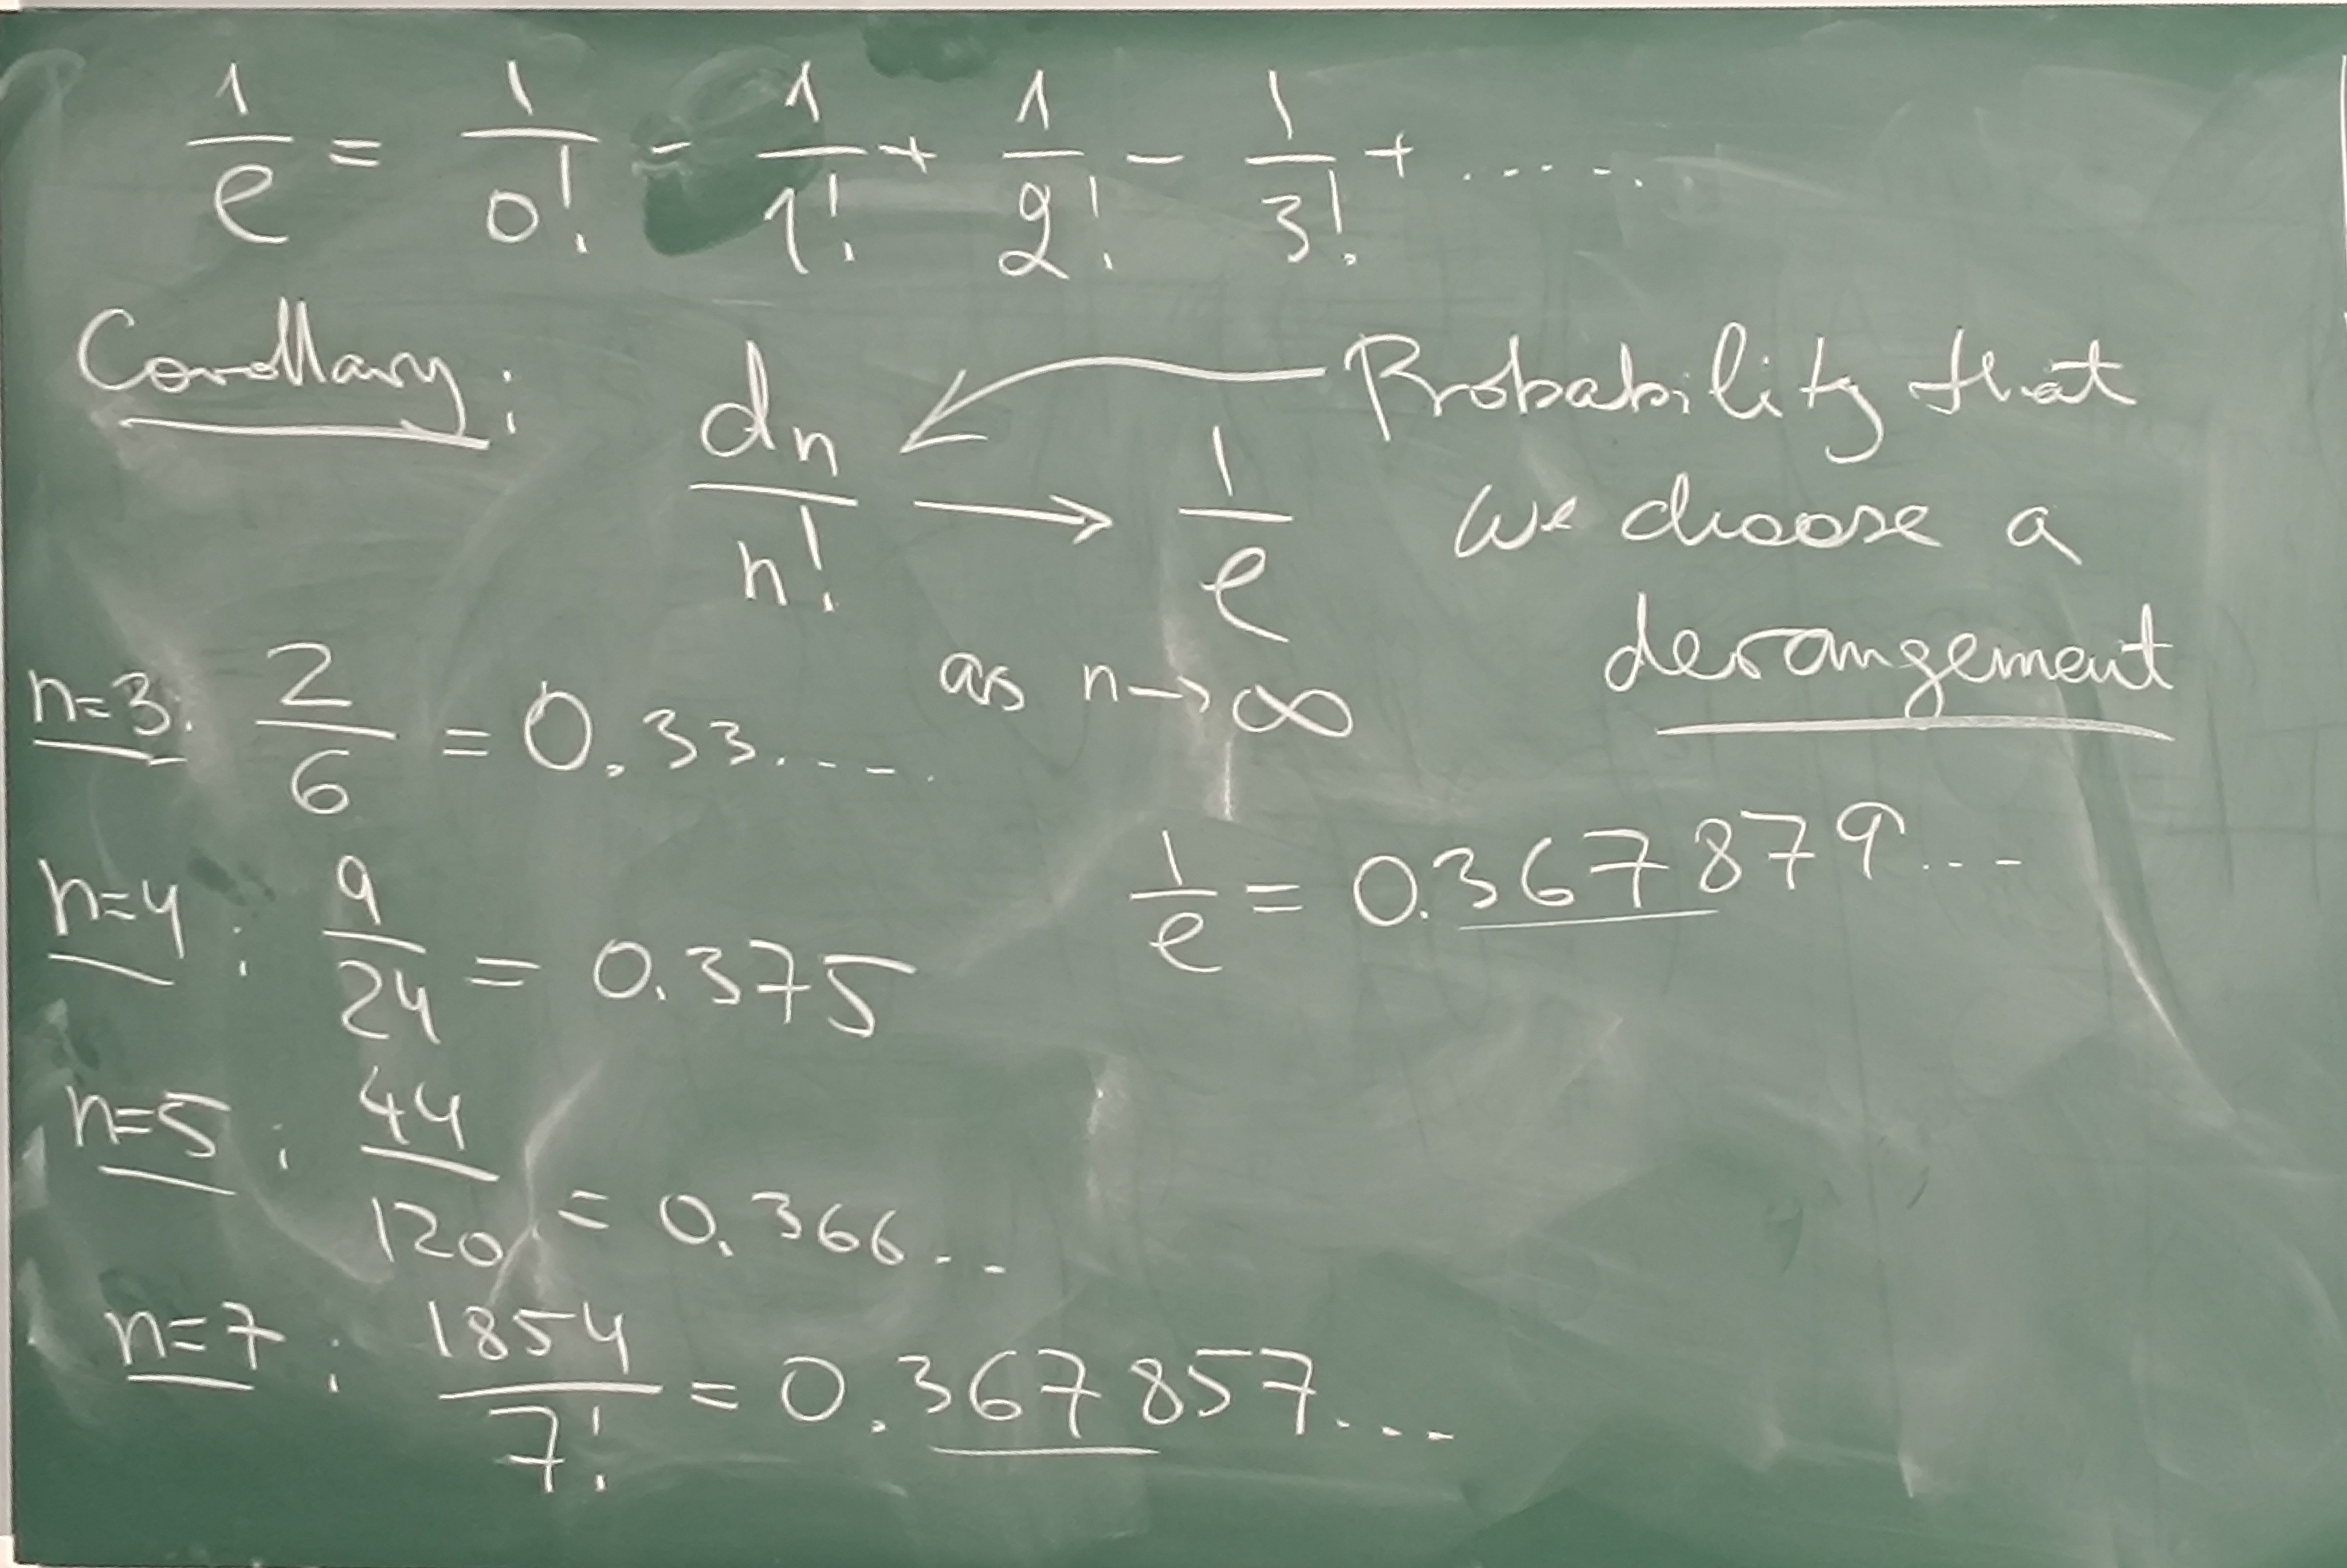 1/e = 1/0! - 1/1! + 1/2! - 1/3! + ......
Corollary: dn/n! → 1/e
as n→∞
Probability that
we choose a
derangement
n=3: 2/6 = 0.33....
1/e = 0.367879...
n=4: 9/24 = 0.375
n=5: 44/120 = 0.366...
n=7: 1854/7! = 0.367857...